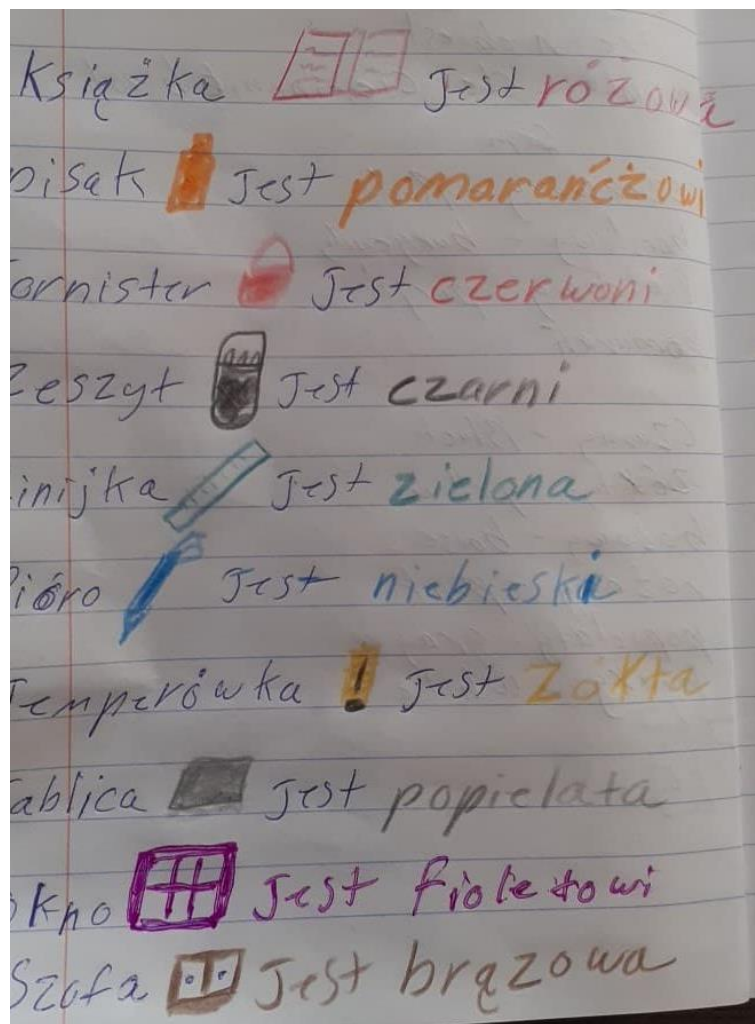 Książka Jest różowa
pisak Jest pomarańćżowi
ornister Jest czerwoni
Zeszyt Jest czarni
inijka Jest zielona
Pióro Jest niebieski
Temperówka ! Jest Zółta
ablica Jest popielata
okno Jest fioletowi
Szafa Jest brązowa